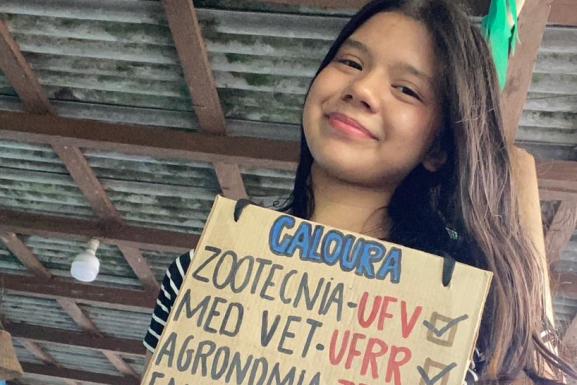 CALOURA
ZOOTECNIA-UFV
MED VET-UFRR
AGRONOMIA